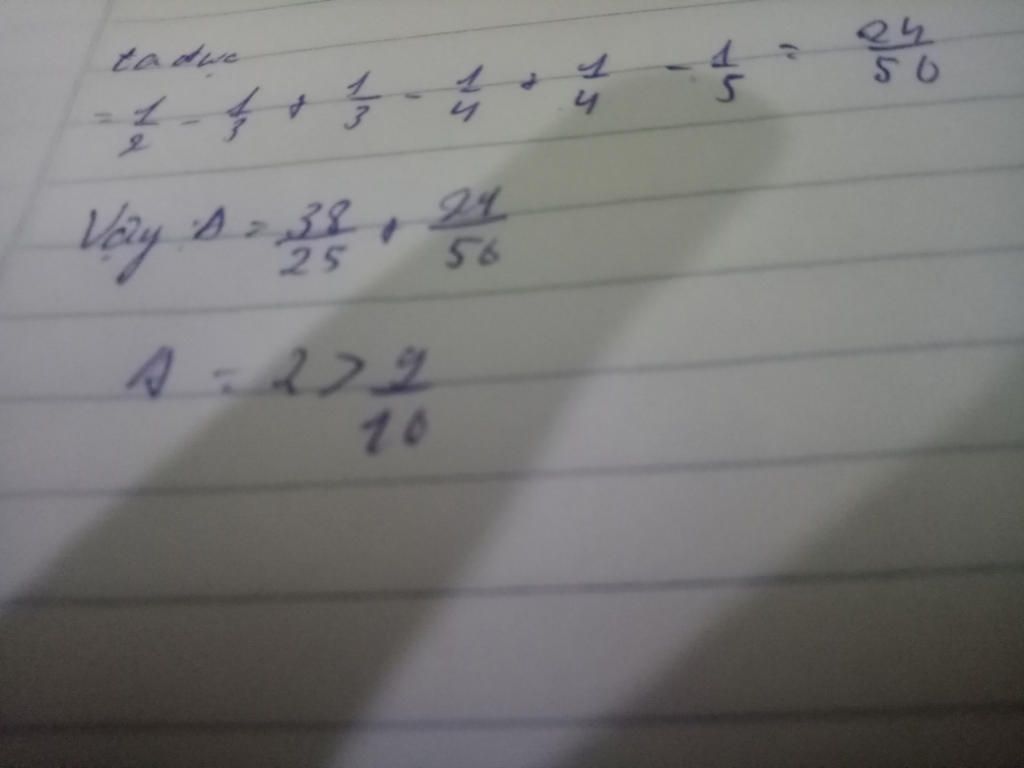 ta được
= 1/2 - 1/3 + 1/3 - 1/4 + 1/4 - 1/5 = 24/50
Vậy A = 38/25 + 24/50
A = 2 > 9/10